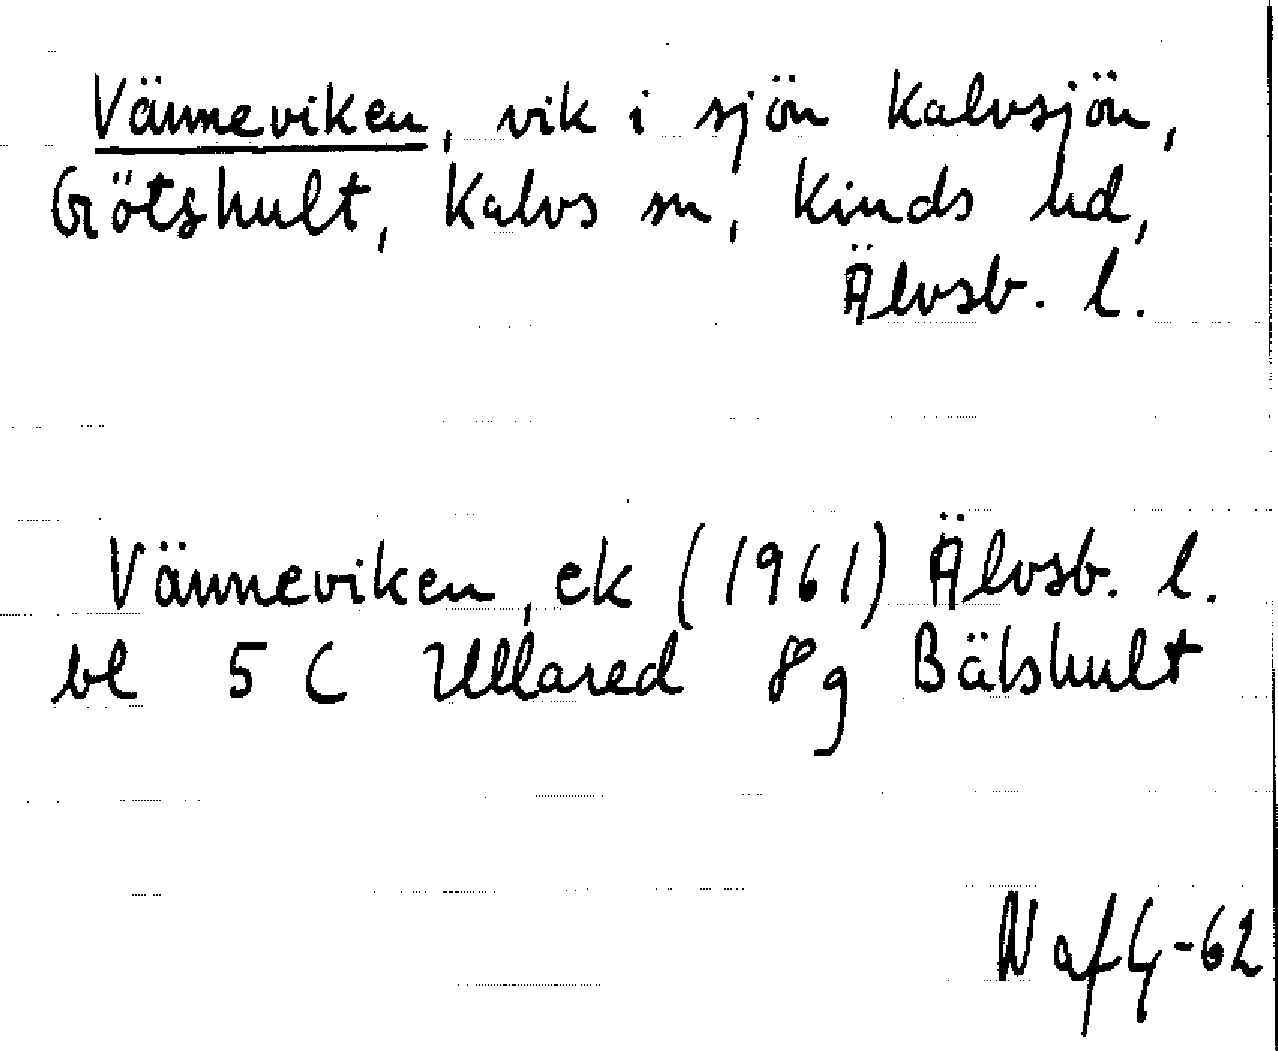 Vänneviken, vik i sjön Kalvsjön,
Götshult, Kalvs sn, Kinds hd,
Älvsb. l.
Vänneviken, ek (1961) Älvsb. l.
bl 5 C Ullared 8g Bälshult
N af G-62